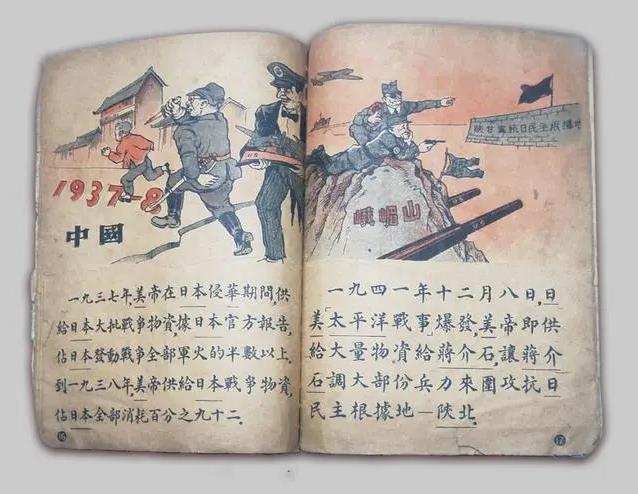 1937-8
中國
一九三七年,美帝在日本侵華期間,供
給日本大批戰爭物資,據日本官方報告,
佔日本發動戰爭全部軍火的半數以上.
到一九三八年,美帝供給日本戰爭物資,
佔日本全部消耗百分之九十二.
16
陝甘寧抗日民主根據地
峨嵋山
U S
U S
一九四一年十二月八日,日
美「太平洋戰爭」爆發,美帝即供
給大量物資給蔣介石,讓蔣介
石調大部份兵力來圍攻抗日
民主根據地—陝北.
17